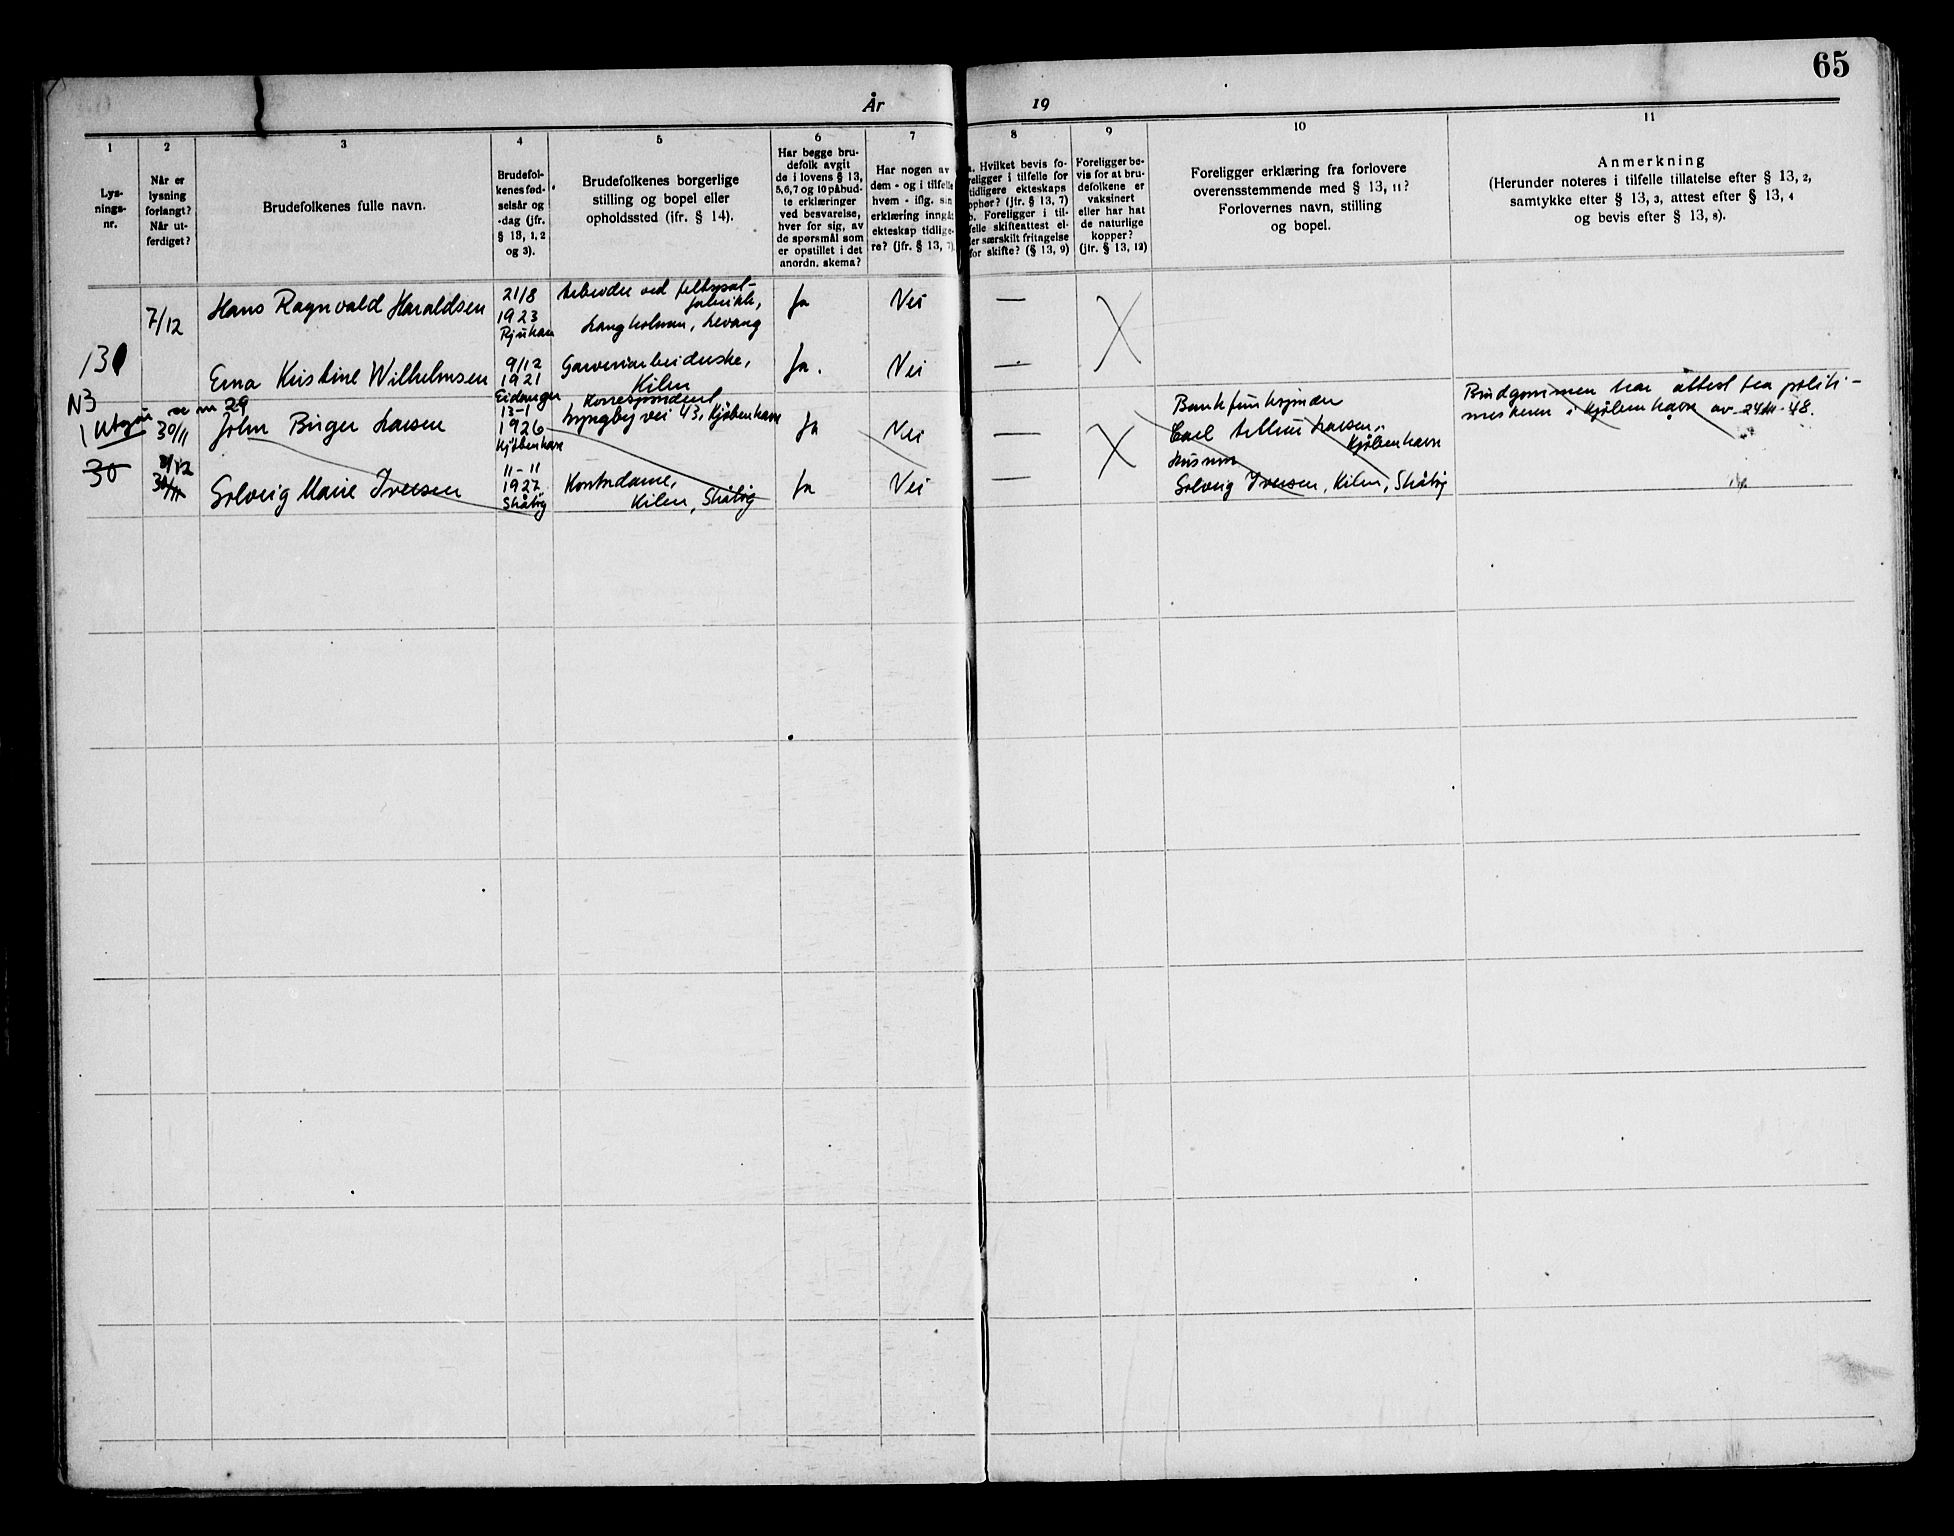 65
År 19
1
Lys-
nings-
nr.
2
Når er
lysning
forlangt?
Når ut-
ferdiget?
3
Brudefolkenes fulle navn.
4
Brudefol-
kenes fød-
selsår og
-dag (jfr.
§ 13, 1, 2
og 3).
5
Brudefolkenes borgerlige
stilling og bopel eller
opholdssted (jfr. § 14).
6
Har begge bru-
defolk avgit
de i lovens § 13,
5,6,7 og 10 påbud-
te erklæringer
ved besvarelse,
hver for sig, av
de spørsmål som
er opstillet i det
anordn. skema?
7
Har nogen av
dem - og i tilfelle
hvem - iflg. sin
erklæring inngåt
ekteskap tidlige-
re? (jfr. § 13, 7)
8
a. Hvilket bevis fo-
religger i tilfelle for
tidligere ekteskaps
ophør? (jfr. § 13, 7)
b. Foreligger i til-
felle skifteattest el-
ler særskilt fritagelse
for skifte? (§ 13, 9)
9
Foreligger be-
vis for at bru-
defolkene er
vaksinert
eller har hat
de naturlige
kopper?
(jfr. § 13, 12)
10
Foreligger erklæring fra forlovere
overensstemmende med § 13, 11?
Forlovernes navn, stilling
og bopel.
11
Anmerkning
(Herunder noteres i tilfelle tillatelse efter § 13, 2,
samtykke efter § 13, 3, attest efter § 13, 4
og bevis efter § 13, 8).
7/12
Hans Ragnvald Haraldsen
21/8
1923
Rjukan
Arbeider ved feltspat-
fabrikk,
Langholmen, Levang
Ja
Nei
—
X
Erna Kristine Wilhelmsen
9/12
1921
Eidanger
Garveriarbeiderske,
Kilen
Ja.
Nei
—
N3
se nr 29
Utgår
30/11
John Birger Larsen
13-1
1926
Kjøbenhavn
Korrespondent
Lyngby vei 43, Kjøbenhavn
Ja
Nei
—
X
Bankfunksjonær
Carl Larsen,
Kjøbenhavn
Brudgommen har attest fra politi-
mesteren i Kjøbenhavn av 24/11-48.
30
Solveig Marie Iversen
11-11
1927
Skåtøy
Kontordame,
Kilen, Skåtøy
Ja
Nei
—
Husmor
Solveig Iversen, Kilen, Skåtøy